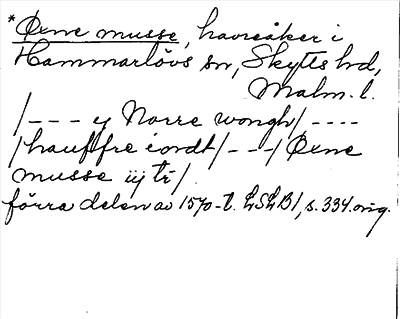 * Øxne musse, havreåker i
Hammarlövs sn, Skytts hd,
Malm. l.
/--- y Norre wongh/ ----
/hauffre iordt/---/ Øxne
musse iij tr/
förra delen av 1570-t. LSLB1, s. 334. orig.